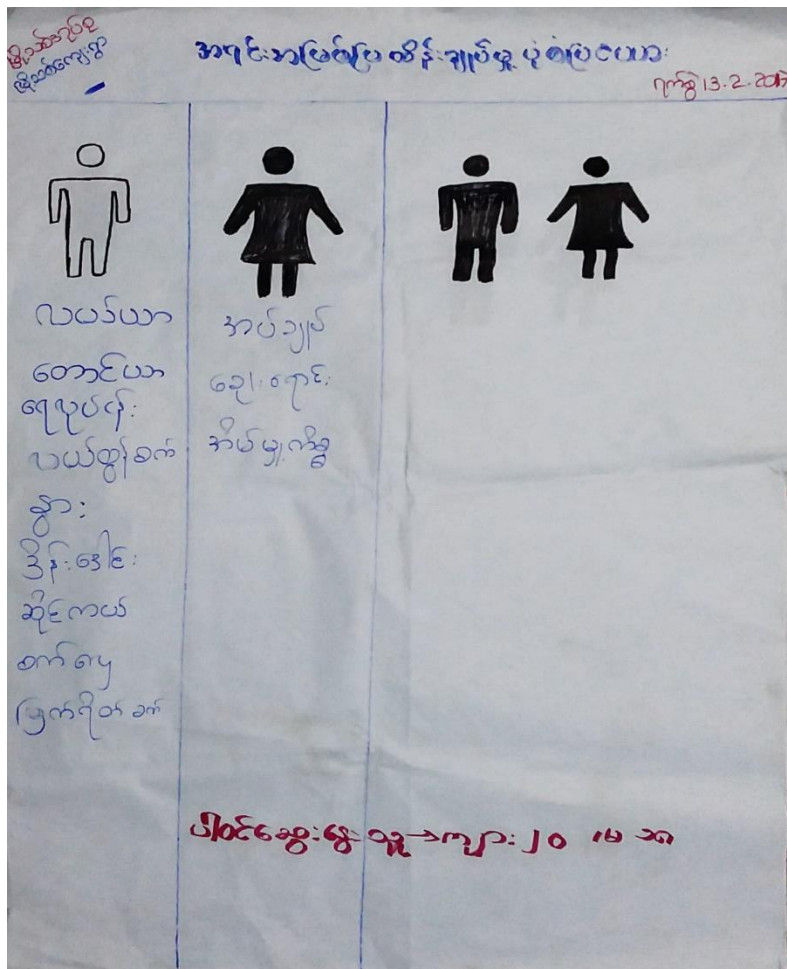 မြို့သစ်ကျေးရွာ
အရင်းအမြစ်ပြ ထိန်းချုပ်မှု ပုံစံပြဇယား
ရက်စွဲ 13.2.2017
လယ်ယာ
တောင်ယာ
ရေလုပ်ငန်း
လယ်ထွန်စက်
နွား
ဒိန်းဒေါင်း
ဆိုင်ကယ်
စက်လှေ
မြက်ရိတ်စက်
အပ်ချုပ်
ဈေးရောင်း
အိမ်မှုကိစ္စ
ပါဝင်ဆွေးနွေးသူ → ကျား ၂၀ ၊ မ